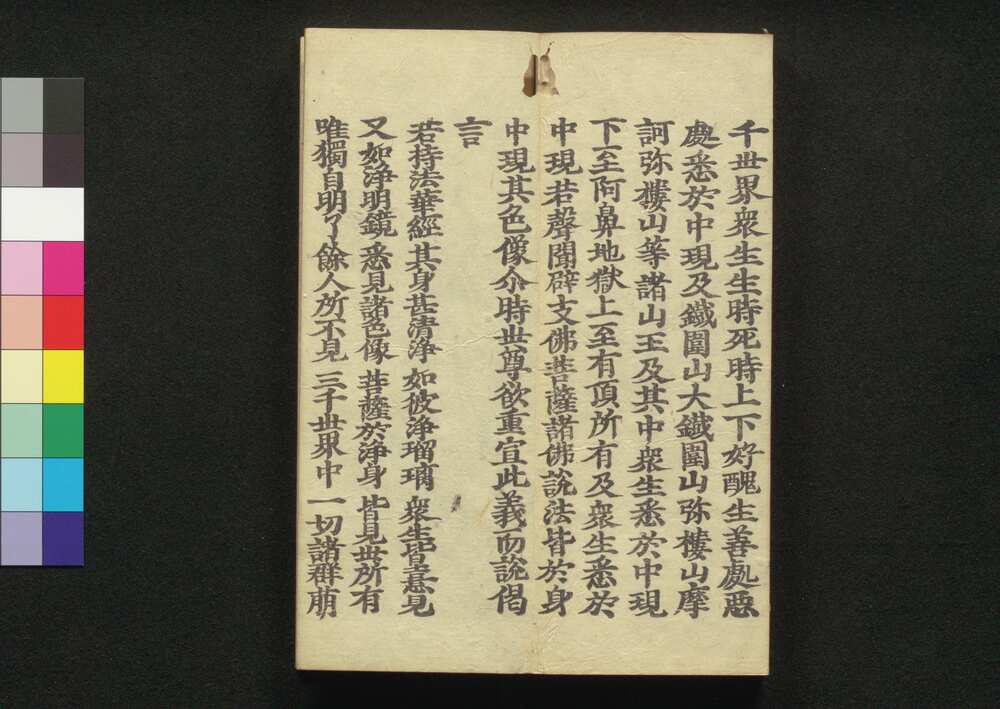 千世界衆生生時死時上下好醜生善處惡
處悉於中現及鐵圍山大鐵圍山弥樓山摩
訶弥樓山等諸山王及其中衆生悉於中現
下至阿鼻地獄上至有頂所有及衆生悉於
中現若聲聞辟支佛菩薩諸佛說法皆於身
中現其色像尒時世尊欲重宣此義而說偈
言
若持法華經 其身甚清淨 如彼淨瑠璃 衆生皆憙見
又如淨明鏡 悉見諸色像 菩薩於淨身 皆見世所有
唯獨自明了 餘人所不見 三千世界中 一切諸群萠